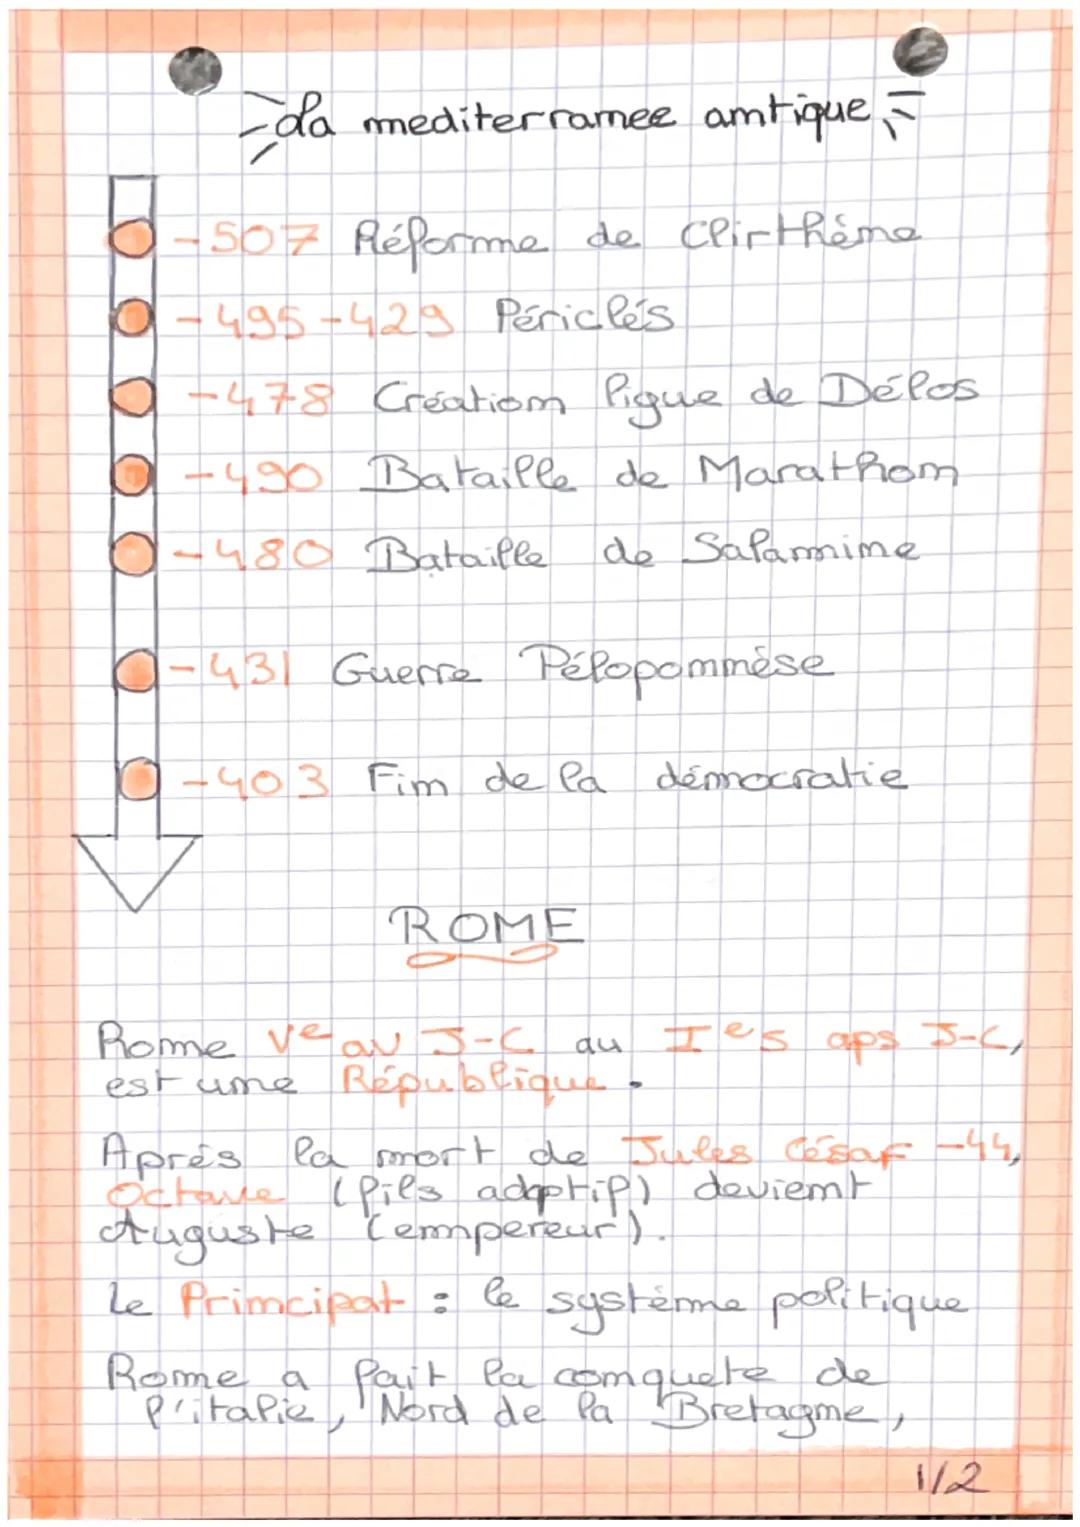 La mediterranee antique
-507 Réforme de Clirthène
-495-429 Périclés
-478 Création ligue de Délos
-490 Bataille de Marathon
-480 Bataille de Salamine
-431 Guerre Péloponnèse
-403 Fin de la démocratie
ROME
Rome Ve av J-C au Ies aps J-C,
est une République.
Après la mort de Jules César -44,
Octave (fils adoptif) devient
Auguste (empereur).
Le Principat : le système politique
Rome a fait la conquete de
l'italie, Nord de la Bretagne,
1/2